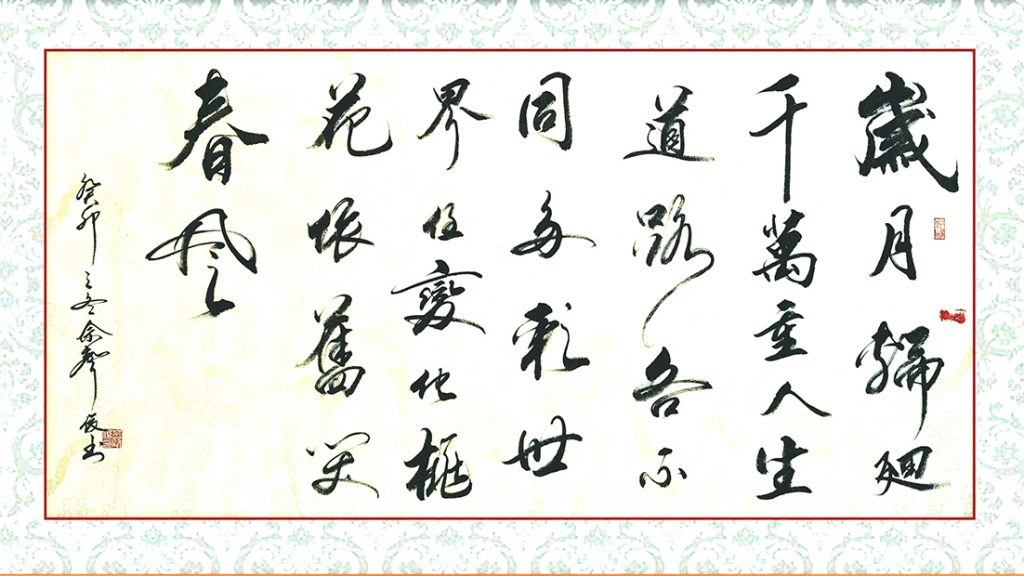 歲月輪廻
千萬重人生
道路各不
同多彩世
界任變化桃
花依舊笑
春風
癸卯之冬余書